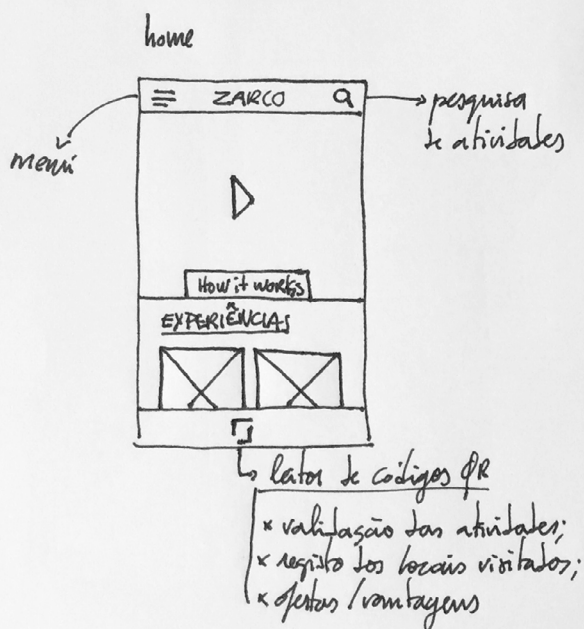 home
ZARCO
menú
pesquisa
de atividades
How it works
EXPERIÊNCIAS
leitor de códigos QR
× validação das atividades;
× registo dos locais visitados;
× ofertas / vantagens